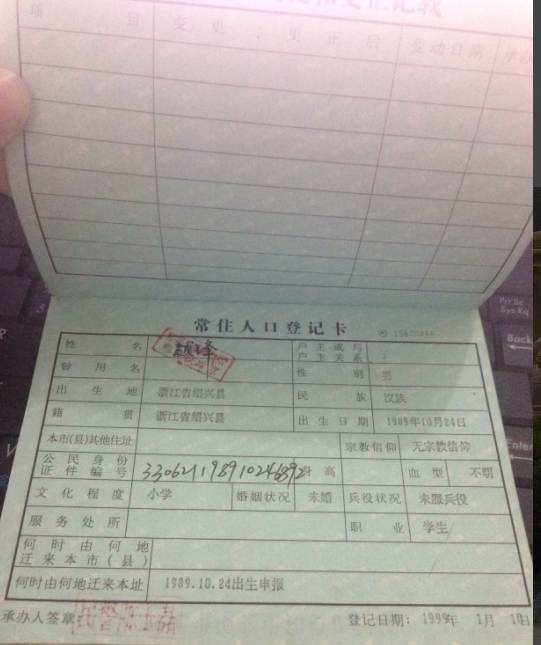 项 目 变更、更正后 变动日期 承办
常住人口登记卡
姓 名 户主或与户主关系
曾用名 性 别 男
出生地 浙江省绍兴县 民 族 汉族
籍 贯 浙江省绍兴县 出生日期 1989年10月24日
本市(县)其他住址 宗教信仰 无宗教信仰
公民身份证件编号 身高 血型 不明
文化程度 小学 婚姻状况 未婚 兵役状况 未服兵役
服务处所 职 业 学生
何时由何地迁来本市(县)
何时由何地迁来本址 1989.10.24出生申报
承办人签章: 登记日期: 1999年 1月 10日
Prt Sc
Sys Rq
Back
Enter